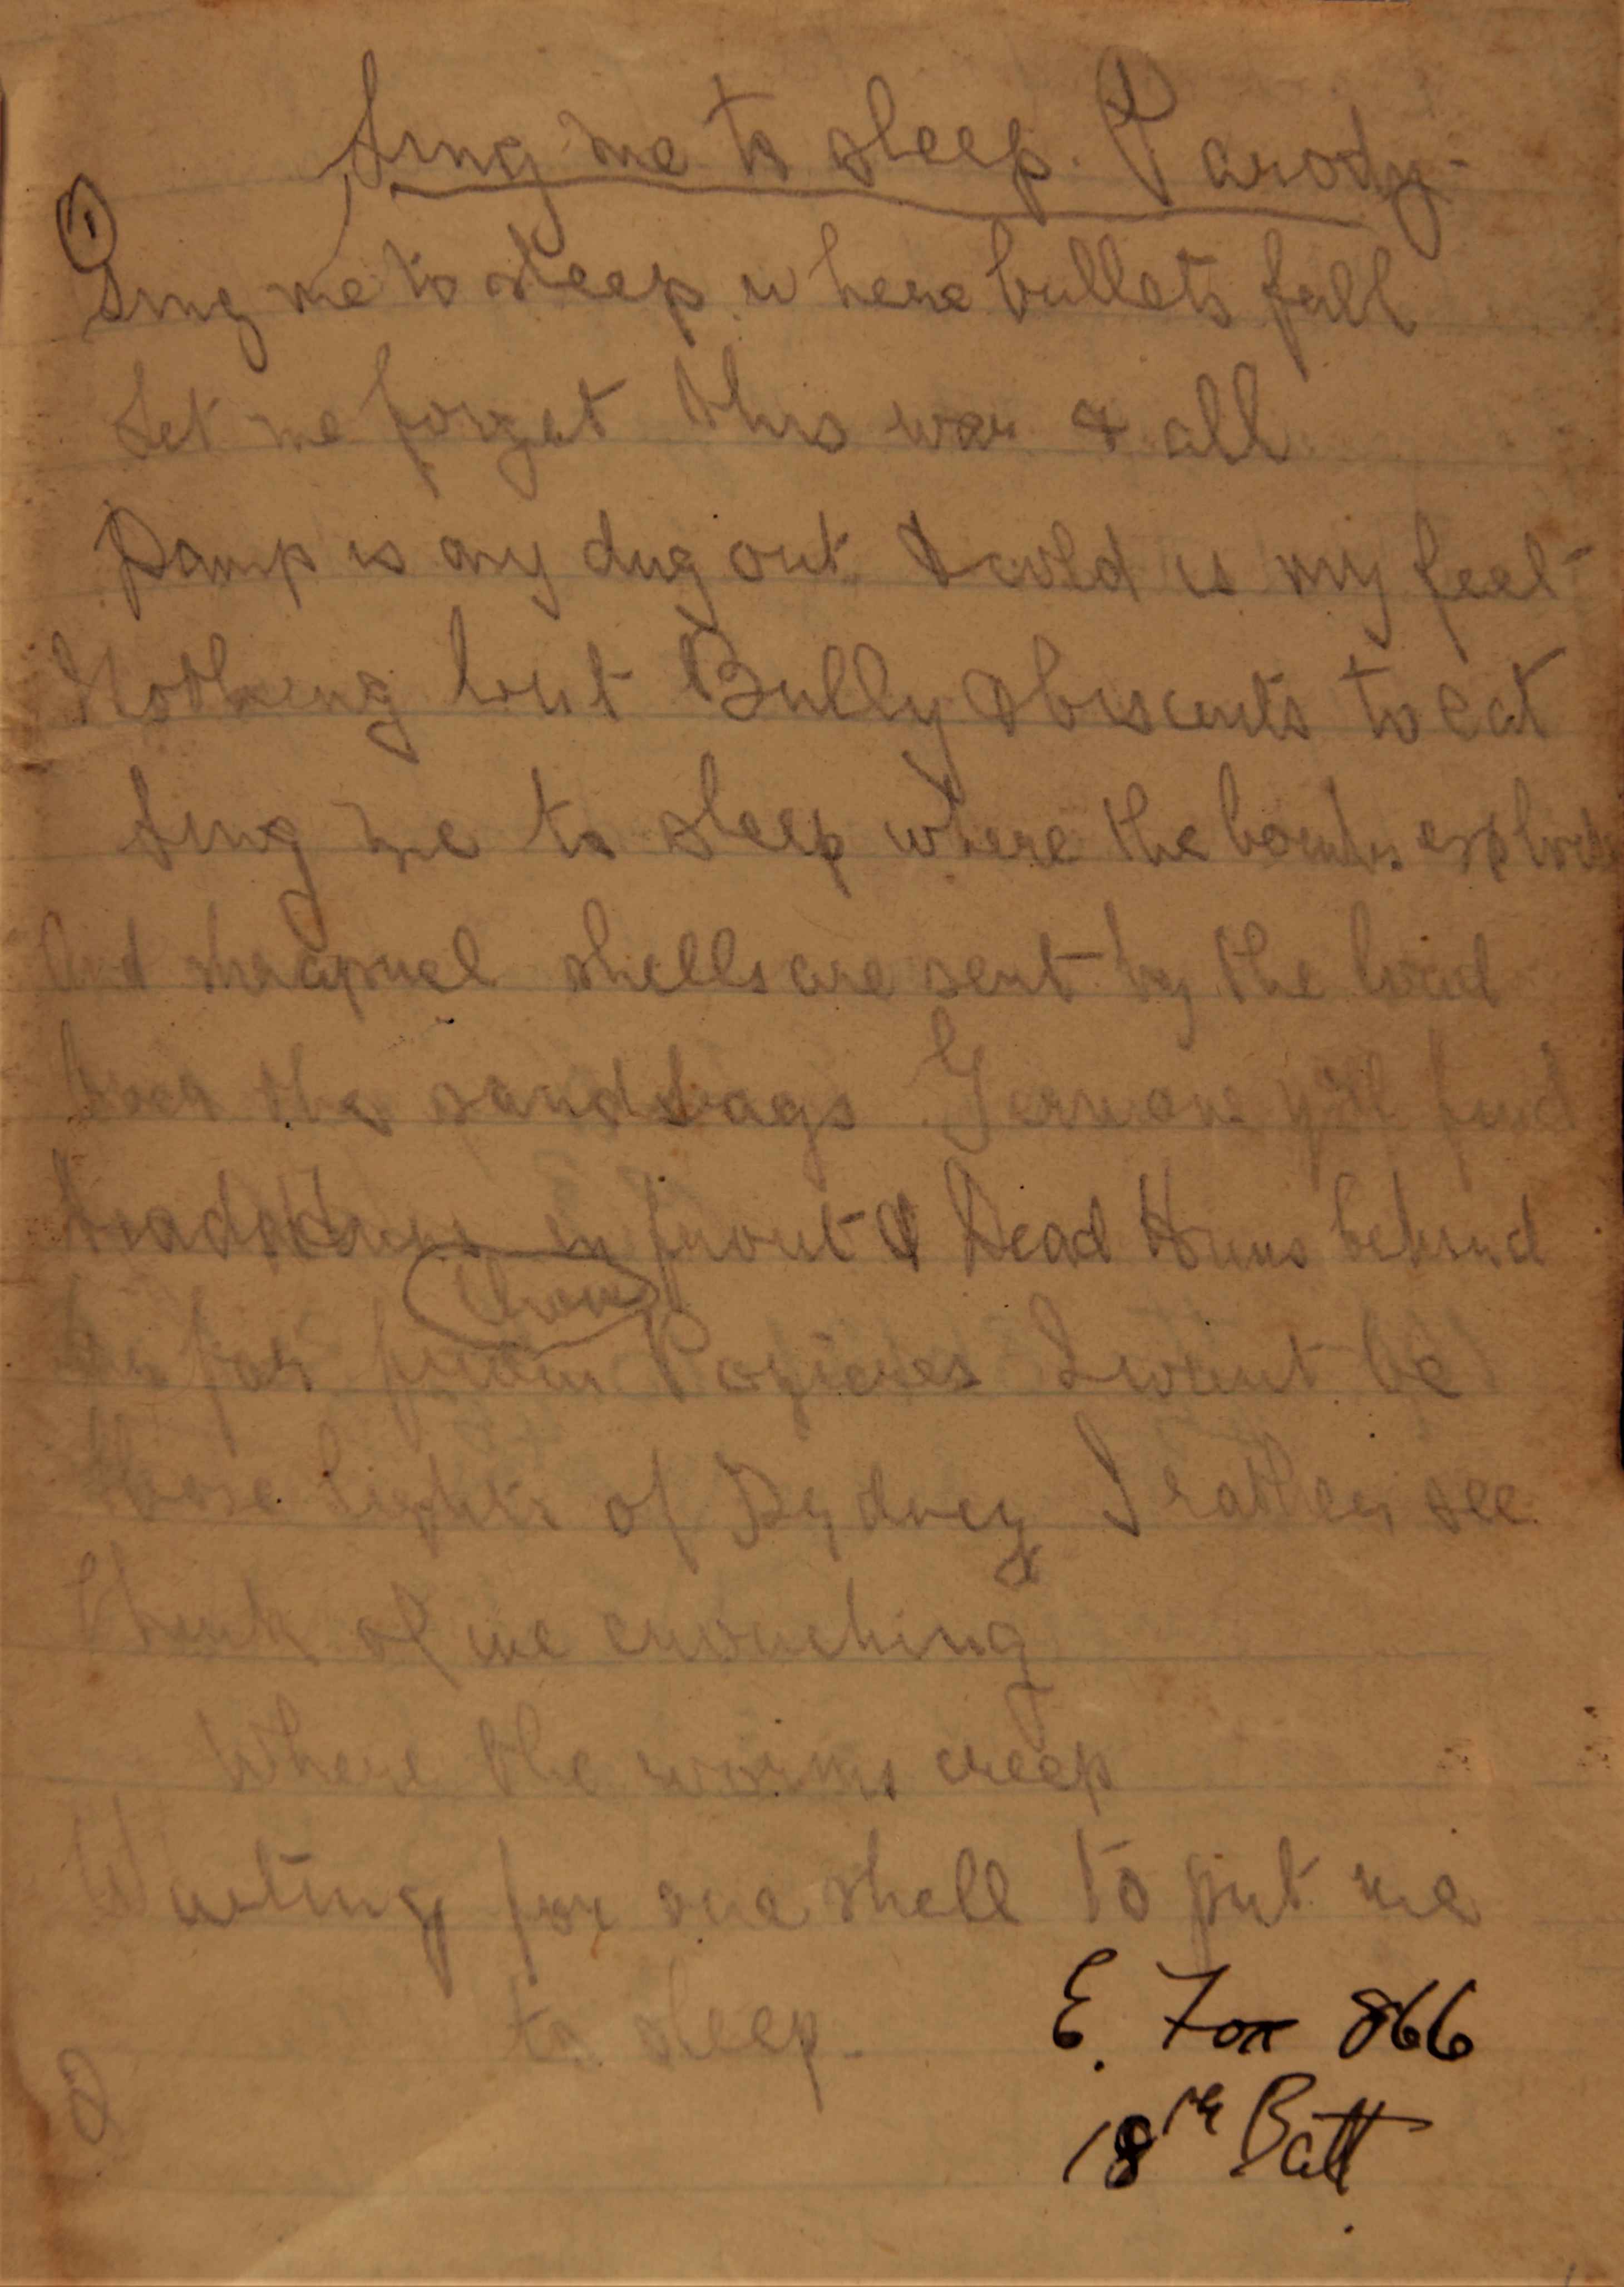 Sing me to sleep. Parody-
1
Sing me to sleep where bullets fall
Let me forget this war & all
Damp is my dug out & cold is my feet
Nothing but Bully & biscuits to eat
Sing me to sleep where the bombs explode
And shrapnel shells are sent by the load
Over the sandbags find
in front & Dead Huns behind
Chorus
far from Pozieres I want be
lights of Sydney I rather see
Think of me crouching
Where the worms creep
Waiting for one shell to put me
to sleep-
E. Fox 866
18th Batt
2